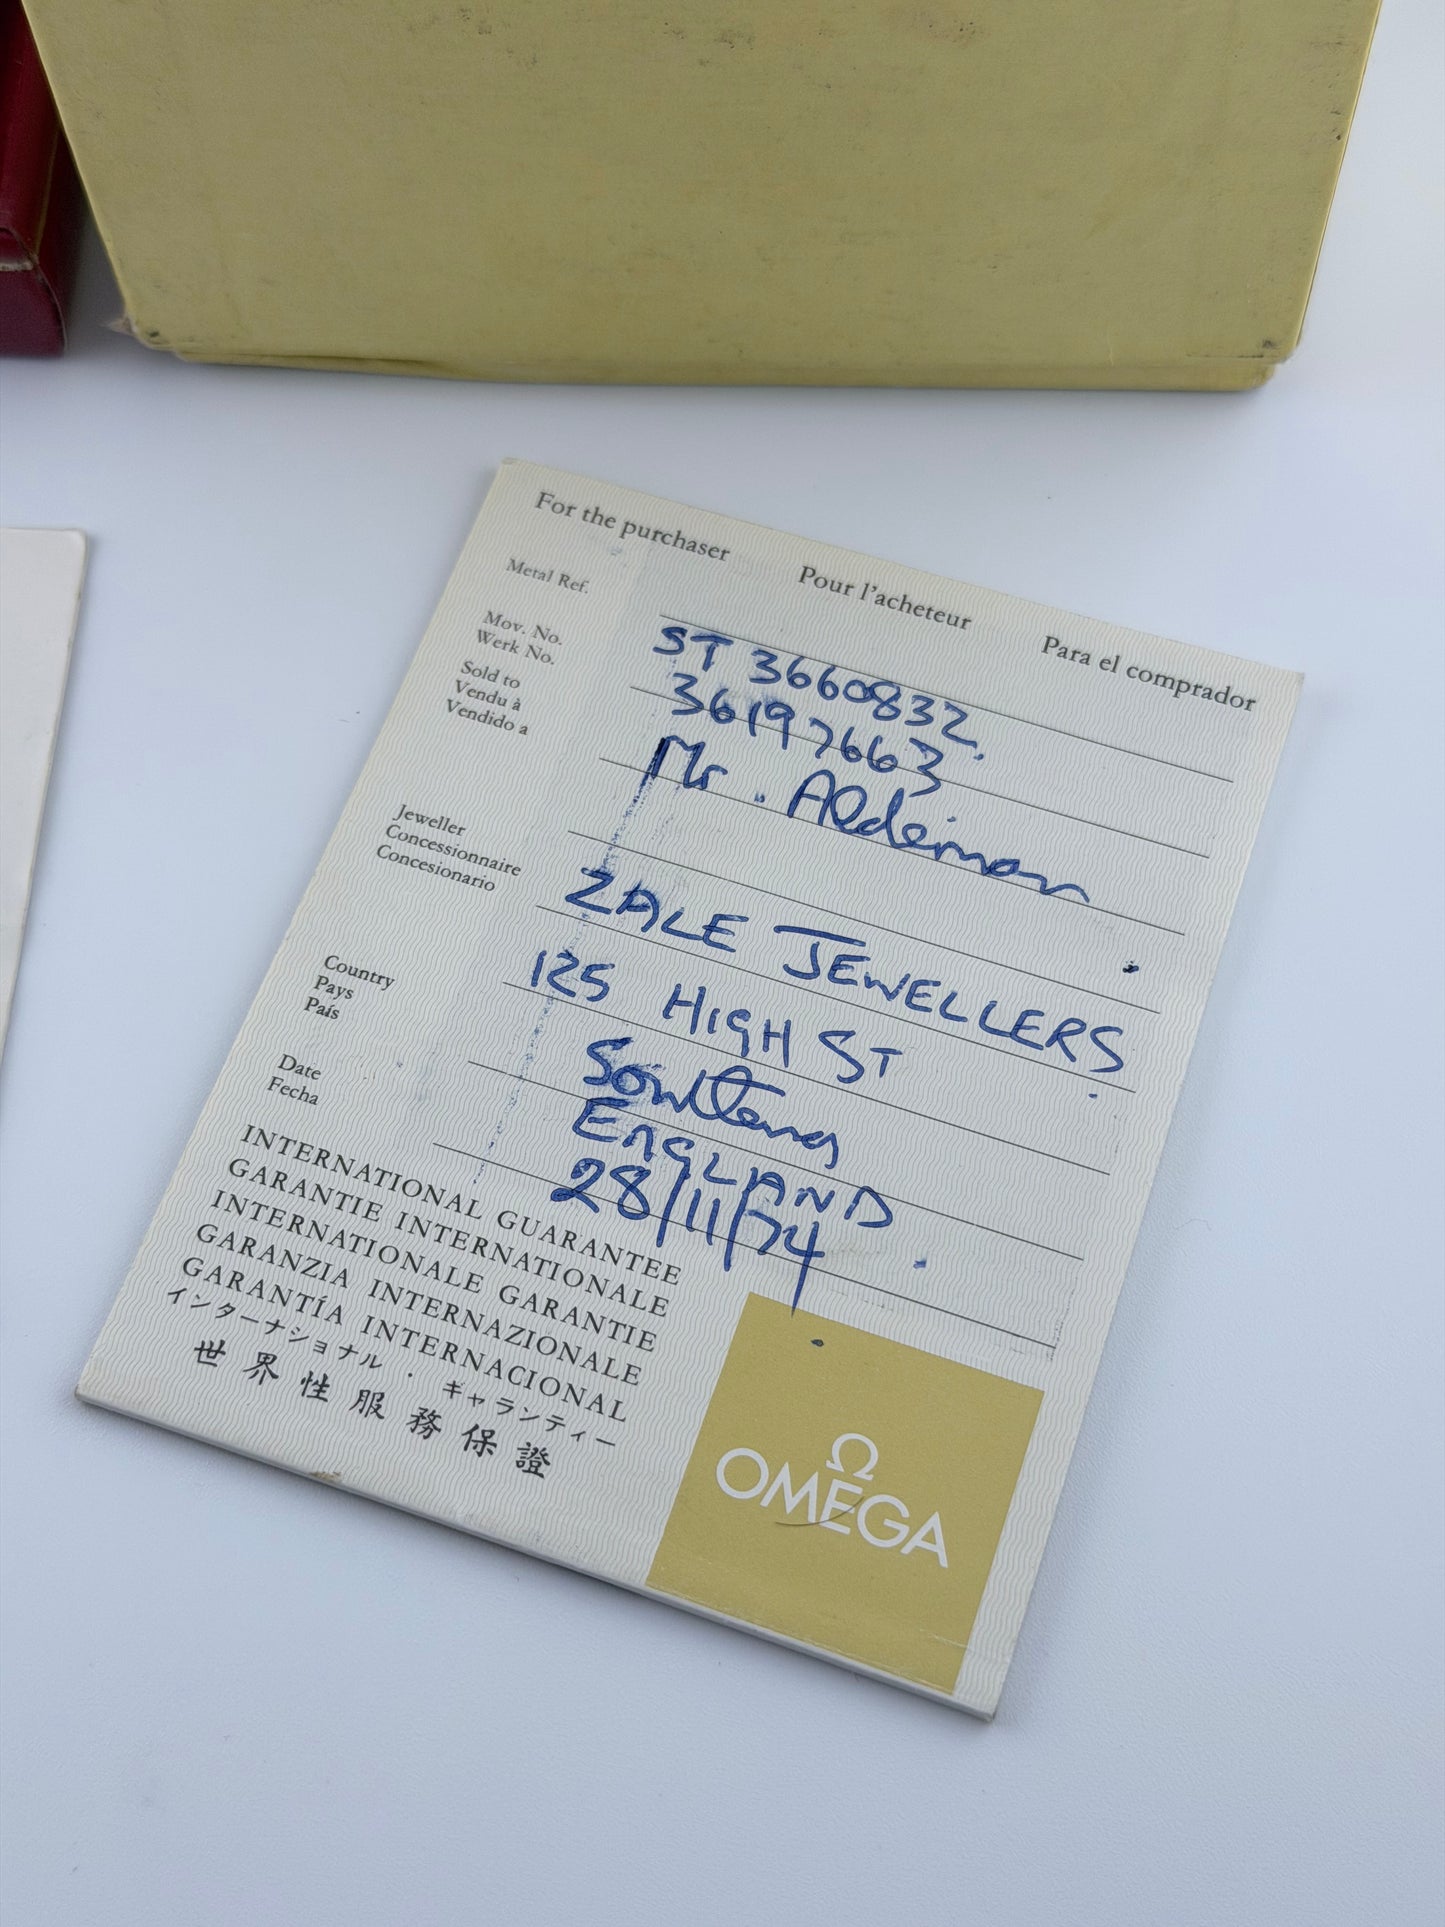 For the purchaser Pour l'acheteur Para el comprador
Metal Ref. ST 3660832.
Mov. No.
Werk No. 36197663
Sold to
Vendu à
Vendido a Mr. Alderman
Jeweller
Concessionnaire
Concesionario
ZALE JEWELLERS
125 HIGH ST
Country
Pays
País
ENGLAND
Date
Fecha 28/11/74
INTERNATIONAL GUARANTEE
GARANTIE INTERNATIONALE
INTERNATIONALE GARANTIE
GARANZIA INTERNAZIONALE
GARANTÍA INTERNACIONAL
インターナショナル・ギャランティー
世界性服務保證
Ω
OMEGA